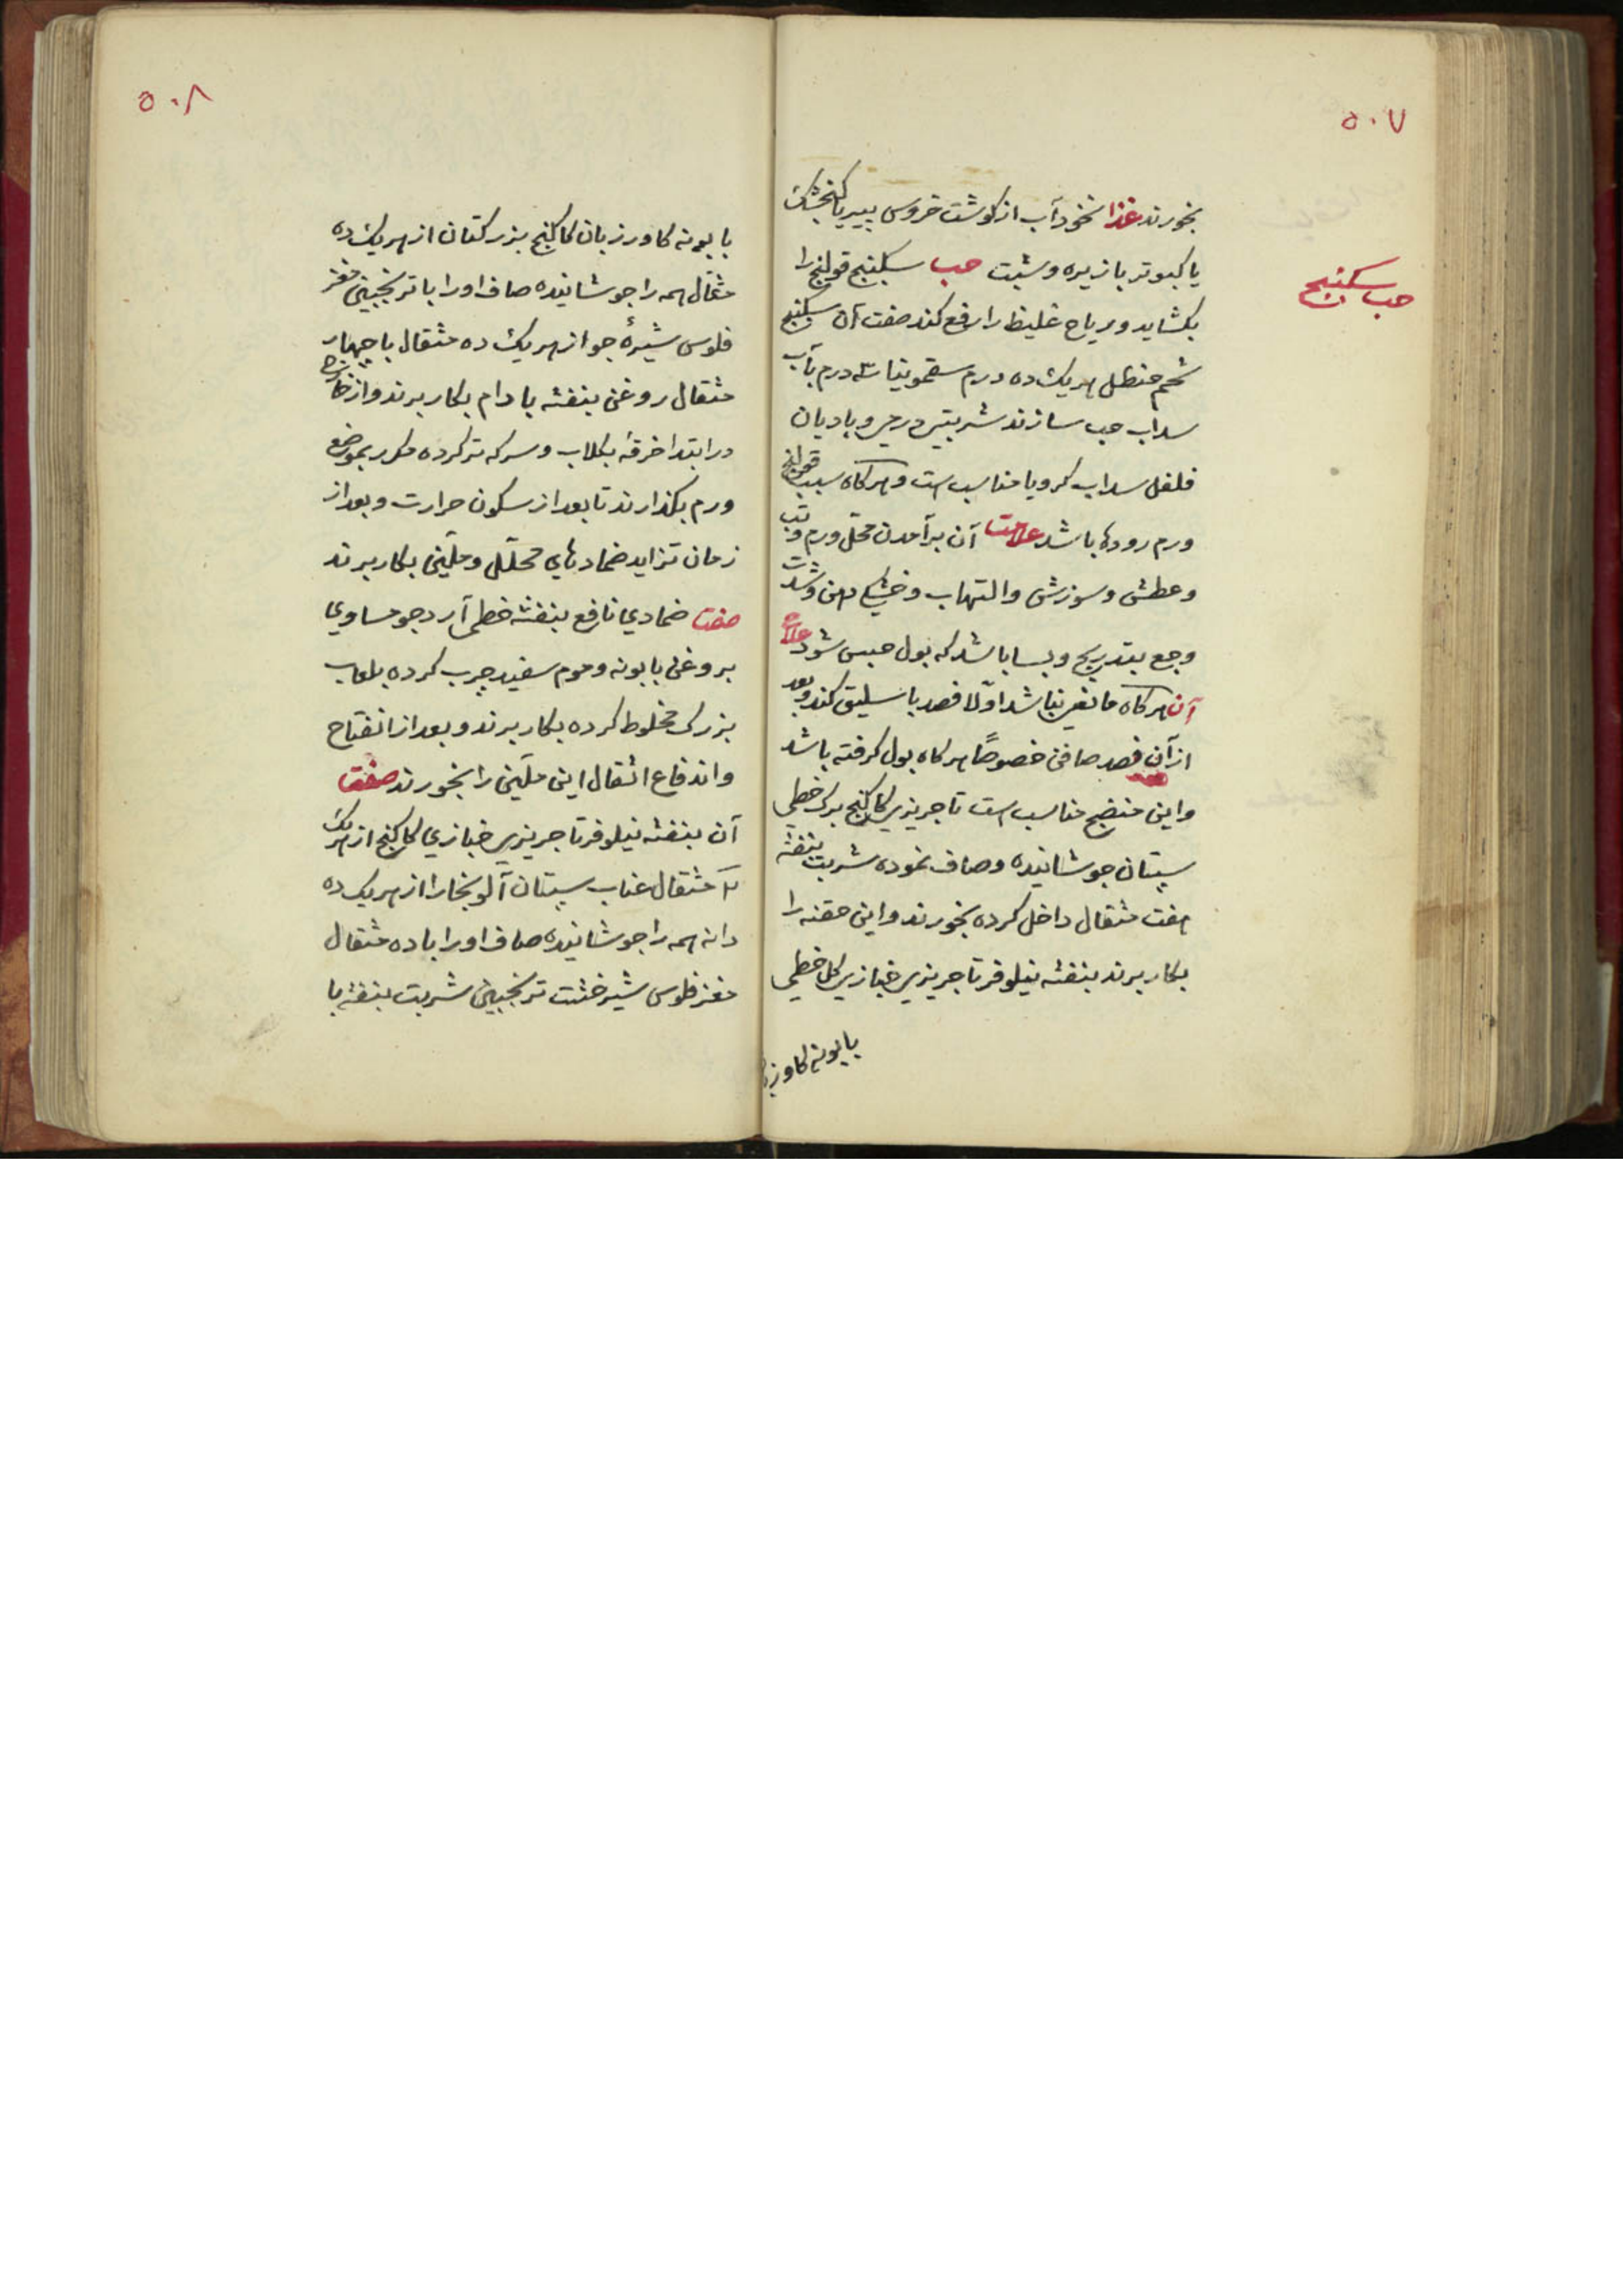 ۵۰۷
بخورند غذا نخودآب از کوشت خروس پیر یا کنجشک
یا کبوتر بازیره و شبت حب سکبنج قولنج را
حب سکبنج
بکشاید و ریاح غلیظ را رفع کند صفت آن سکبنج
شحم حنظل هریک ده درم سقمونیا سه درم بآب
سداب حب سازند شربتی درم و بادیان
فلفل سداب کرویا مناسب است و هرکاه سبب قولنج
ورم روده‌ها باشد علامت آن برآمدن محل ورم و تب
وعطش و سوزش و التهاب و خشکی دهن و شدت
وجع بتدریج و بسا باشد که بول حبس شود علاج
آن هرکاه مانعی نباشد اولا فصد باسلیق کنند و بعد
از آن فصد صافن خصوصًا هرکاه بول کرفته باشد
واین منضج مناسب است تاجریزی کاکنج برک خطمی
سپستان جوشانیده و صاف نموده شربت بنفشه
هفت مثقال داخل کرده بخورند و این حقنه را
بکار برند بنفشه نیلوفر تاجریزی خبازی کل خطمی
بابونه کاوز
۵۰۸
بابونه کاوزبان کاکنج بزرکتان از هریک ده
مثقال همه را جوشانیده صاف اورا با ترنجبین مغز
فلوس شیرهٔ جو از هریک ده مثقال با چهار
مثقال روغن بنفشه بادام بکار برند و از خارج
در ابتدا خرقه بکلاب و سرکه تر کرده مکرر بموضع
ورم بکذارند تا بعد از سکون حرارت و بعد از
زمان تزاید ضمادهای محلّل و ملیّن بکار برند
صفت ضمادی نافع بنفشه خطمی آرد جو مساوی
بروغن بابونه و موم سفید چرب کرده بلعاب
بزرک مخلوط کرده بکار برند و بعد از انفتاح
و اندفاع اثقال این ملیّن را بخورند صفت
آن بنفشه نیلوفر تاجریزی خبازی کاکنج از هریک
مثقال عناب سپستان آلوبخارا از هریک ده
دانه همه را جوشانیده صاف اورا با ده مثقال
مغز فلوس شیرخشت ترنجبین شربت بنفشه با